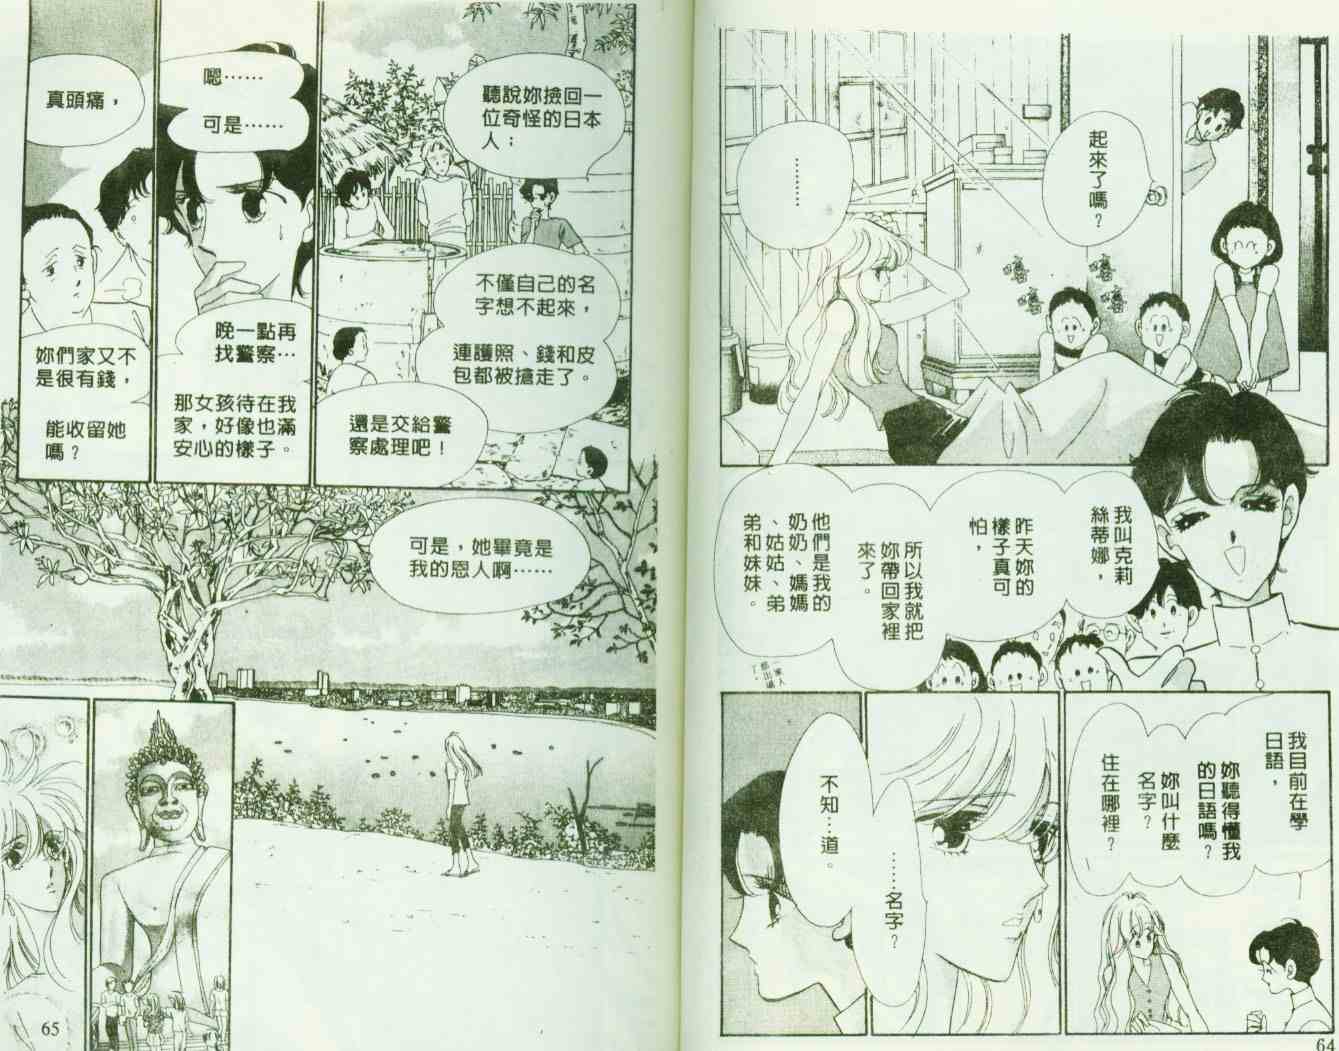 起來了嗎？
⋯⋯⋯
嘻嘻
嘻嘻
我叫克莉
絲蒂娜，
昨天妳的
樣子真可
怕，
所以我就把
妳帶回家裡
來了。
他們是我的
奶奶、媽媽
、姑姑、弟
弟和妹妹。
我目前在學
日語，
妳聽得懂我
的日語嗎？
妳叫什麼
名字？
住在哪裡？
⋯⋯名字？
不知⋯道。
64
聽說妳撿回一
位奇怪的日本
人：
不僅自己的名
字想不起來，
連護照、錢和皮
包都被搶走了。
還是交給警
察處理吧！
嗯⋯⋯
可是⋯⋯
晚一點再
找警察⋯
那女孩待在我
家，好像也滿
安心的樣子。
真頭痛，
妳們家又不
是很有錢，
能收留她
嗎？
可是，她畢竟是
我的恩人啊⋯⋯
65